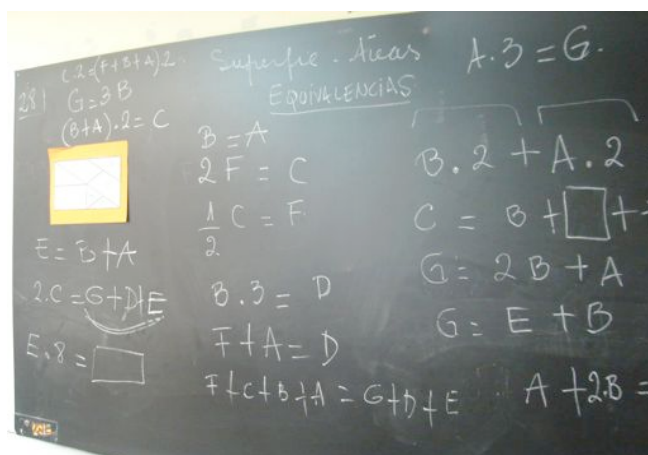 C.2=(F+B+A)2
28|
G=3B
(B+A).2=C
E=B+A
2.C=G+D+E
E.8=
Superficie. Áreas
EQUIVALENCIAS
B=A
2F=C
1/2 C=F
B.3=D
F+A=D
F+C+B+A=G+D+E
A.3=G.
B.2+A.2
C=B+□+
G=2B+A
G=E+B
A+2.B=